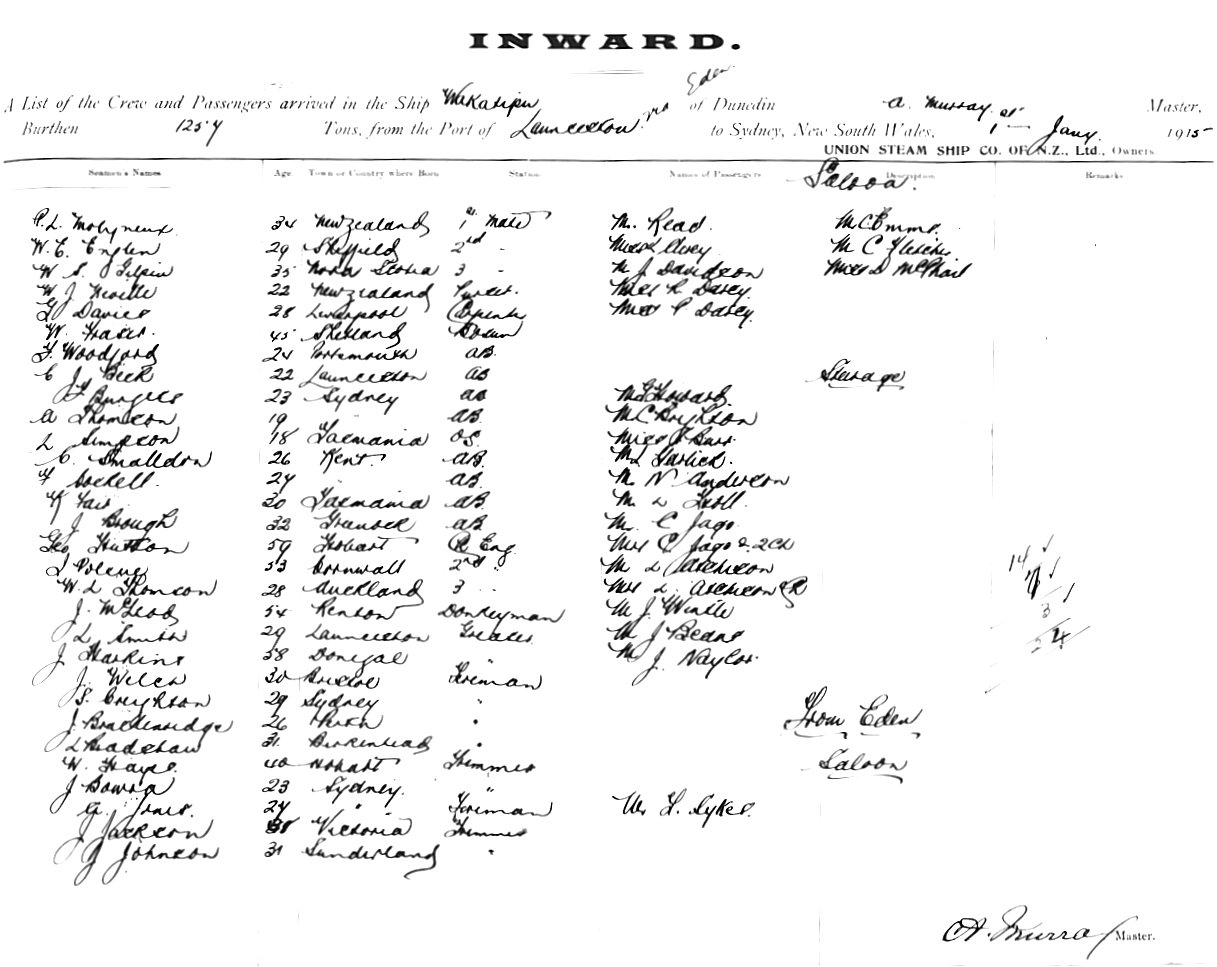 INWARD.
A List of the Crew and Passengers arrived in the Ship Wakatipu of Dunedin A. Murray Master,
Burthen 1257 Tons, from the Port of Launceston via Eden to Sydney, New South Wales, 1st Jany. 1915
UNION STEAM SHIP CO. OF N.Z., Ltd., Owners
Seamen's Names Age Town or Country where Born Station Names of Passengers Description Remarks
Saloon.
P. L. Molyneux 34 New Zealand 1st Mate M. Read. M C Emms.
W. E. 29 Sheffield 2nd - M C Fletcher
W S Gilpin 35 Nova Scotia 3 - M J Davidson Miss D McPhail
W J Neville 22 New Zealand Purser. Miss R Darey
G Davies 28 Liverpool Carpenter Miss P Darey.
W. Fraser. 45 Shetland Bosun
F. Woodford 24 Portsmouth AB.
C J Beck 22 Launceston AB Steerage
F Burgess 23 Sydney AB M Howard.
A Thomson 19 " AB. M C Brighton
L Simpson 18 Tasmania OS. Miss Burr.
C. Smalldon 26 Kent. AB. M Garlick.
F 24 " AB. M. N Anderson
30 Tasmania AB. M. L
J Brough 32 AB M. C Jago.
Geo Hutton 59 Hobart C Eng. Mrs C Jago & 2 Ch
53 Cornwall 2nd " M L Atcheson
W. L Thomson 28 Auckland 3 - Mrs L. Atcheson
J. McLeod 54 Donkeyman M J Wintle
L Smith 29 Launceston Greaser M J Beans
J Harkins 38 Donegal " M J. Naylor.
J. Welch 30 Bristol Fireman
S. Creighton 29 Sydney "
J. Brackenridge 26 Perth " From Eden
L Bradshaw 31 Birkenhead "
W. Hays. 40 Hobart Trimmer Saloon
J Bowra 23 Sydney. "
G. Jones. 24 " Fireman Mr F. Sykes.
J Jackson 38 Victoria Trimmer
J Johnson 31 Sunderland "
14
7
3
24
A. Murray Master.